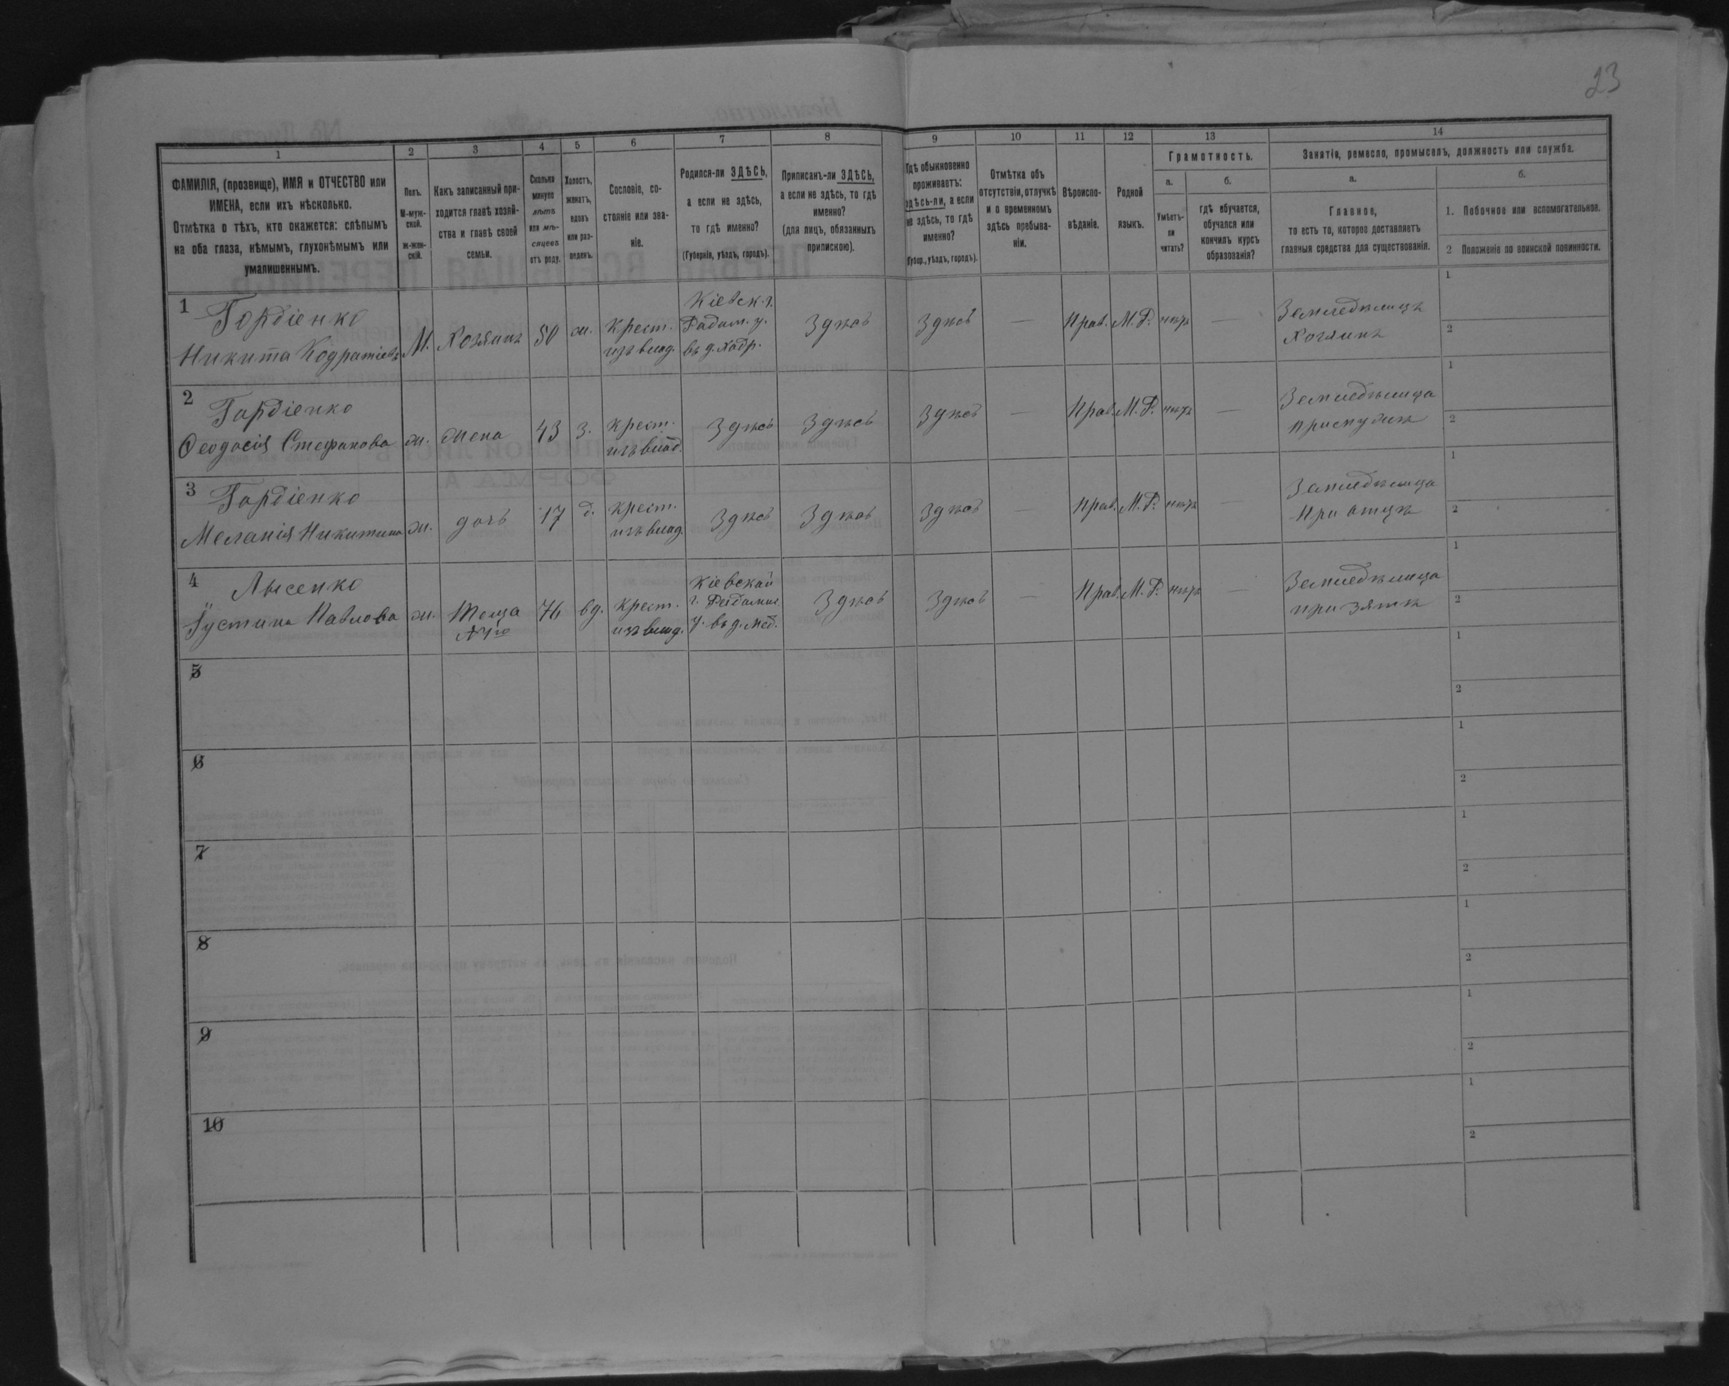 23
1
2
3
4
5
6
7
8
9
10
11
12
13
14
ФАМИЛІЯ, (прозвище), ИМЯ и ОТЧЕСТВО или
ИМЕНА, если ихъ нѣсколько.
Отмѣтка о тѣхъ, кто окажется: слѣпымъ
на оба глаза, нѣмымъ, глухонѣмымъ или
умалишеннымъ.
Полъ.
М-муж-
ской.
ж-жен-
скій.
Какъ записанный при-
ходится главѣ хозяй-
ства и главѣ своей
семьи.
Сколько
минуло
лѣтъ
или мѣ-
сяцевъ
отъ роду.
Холостъ,
женатъ,
вдовъ
или раз-
веденъ.
Сословіе, со-
стояніе или зва-
ніе.
Родился-ли ЗДѢСЬ,
а если не здѣсь,
то гдѣ именно?
(Губернія, уѣздъ, городъ).
Приписанъ-ли ЗДѢСЬ,
а если не здѣсь, то гдѣ
именно?
(для лицъ, обязанныхъ
припискою).
Гдѣ обыкновенно
проживаетъ:
здѣсь-ли, а если
не здѣсь, то гдѣ
именно?
(Губер., уѣздъ, городъ).
Отмѣтка объ
отсутствіи, отлучкѣ
и о временномъ
здѣсь пребыва-
ніи.
Вѣроиспо-
вѣданіе.
Родной
языкъ.
Грамотность.
а.
б.
Умѣетъ-
ли
читать?
гдѣ обучается,
обучался или
кончилъ курсъ
образованія?
Занятіе, ремесло, промыселъ, должность или служба.
а.
б.
Главное,
то есть то, которое доставляетъ
главныя средства для существованія.
1. Побочное или вспомогательное.
2 Положеніе по воинской повинности.
1
Гордіенко
Никита Кодратіевъ М. Хозяинъ 50 ж. Крест. изъ влад. Кіевск. г. Радом. у. въ д. Здѣсь Здѣсь — Прав. М. Р. нѣтъ — Земледѣлецъ Хозяинъ
1
2
2
Гордіенко
Феодосія Стефанова ж. жена 43 з. Крест. изъ влад. Здѣсь Здѣсь Здѣсь — Прав. М. Р. нѣтъ — Земледѣлица при мужѣ
1
2
3
Гордіенко
Меланія Никитина ж. дочь 17 д. Крест. изъ влад. Здѣсь Здѣсь Здѣсь — Прав. М. Р. нѣтъ — Земледѣлица При отцѣ
1
2
4
Лысенко
Густина Павлова ж. Теща №1го 76 вд. Крест. изъ влад. Кіевской г. Радомис. у. въ д. Мед. Здѣсь Здѣсь — Прав. М. Р. нѣтъ Земледѣлица при зятѣ
1
2
5
1
2
6
1
2
7
1
2
8
1
2
9
1
2
10
1
2